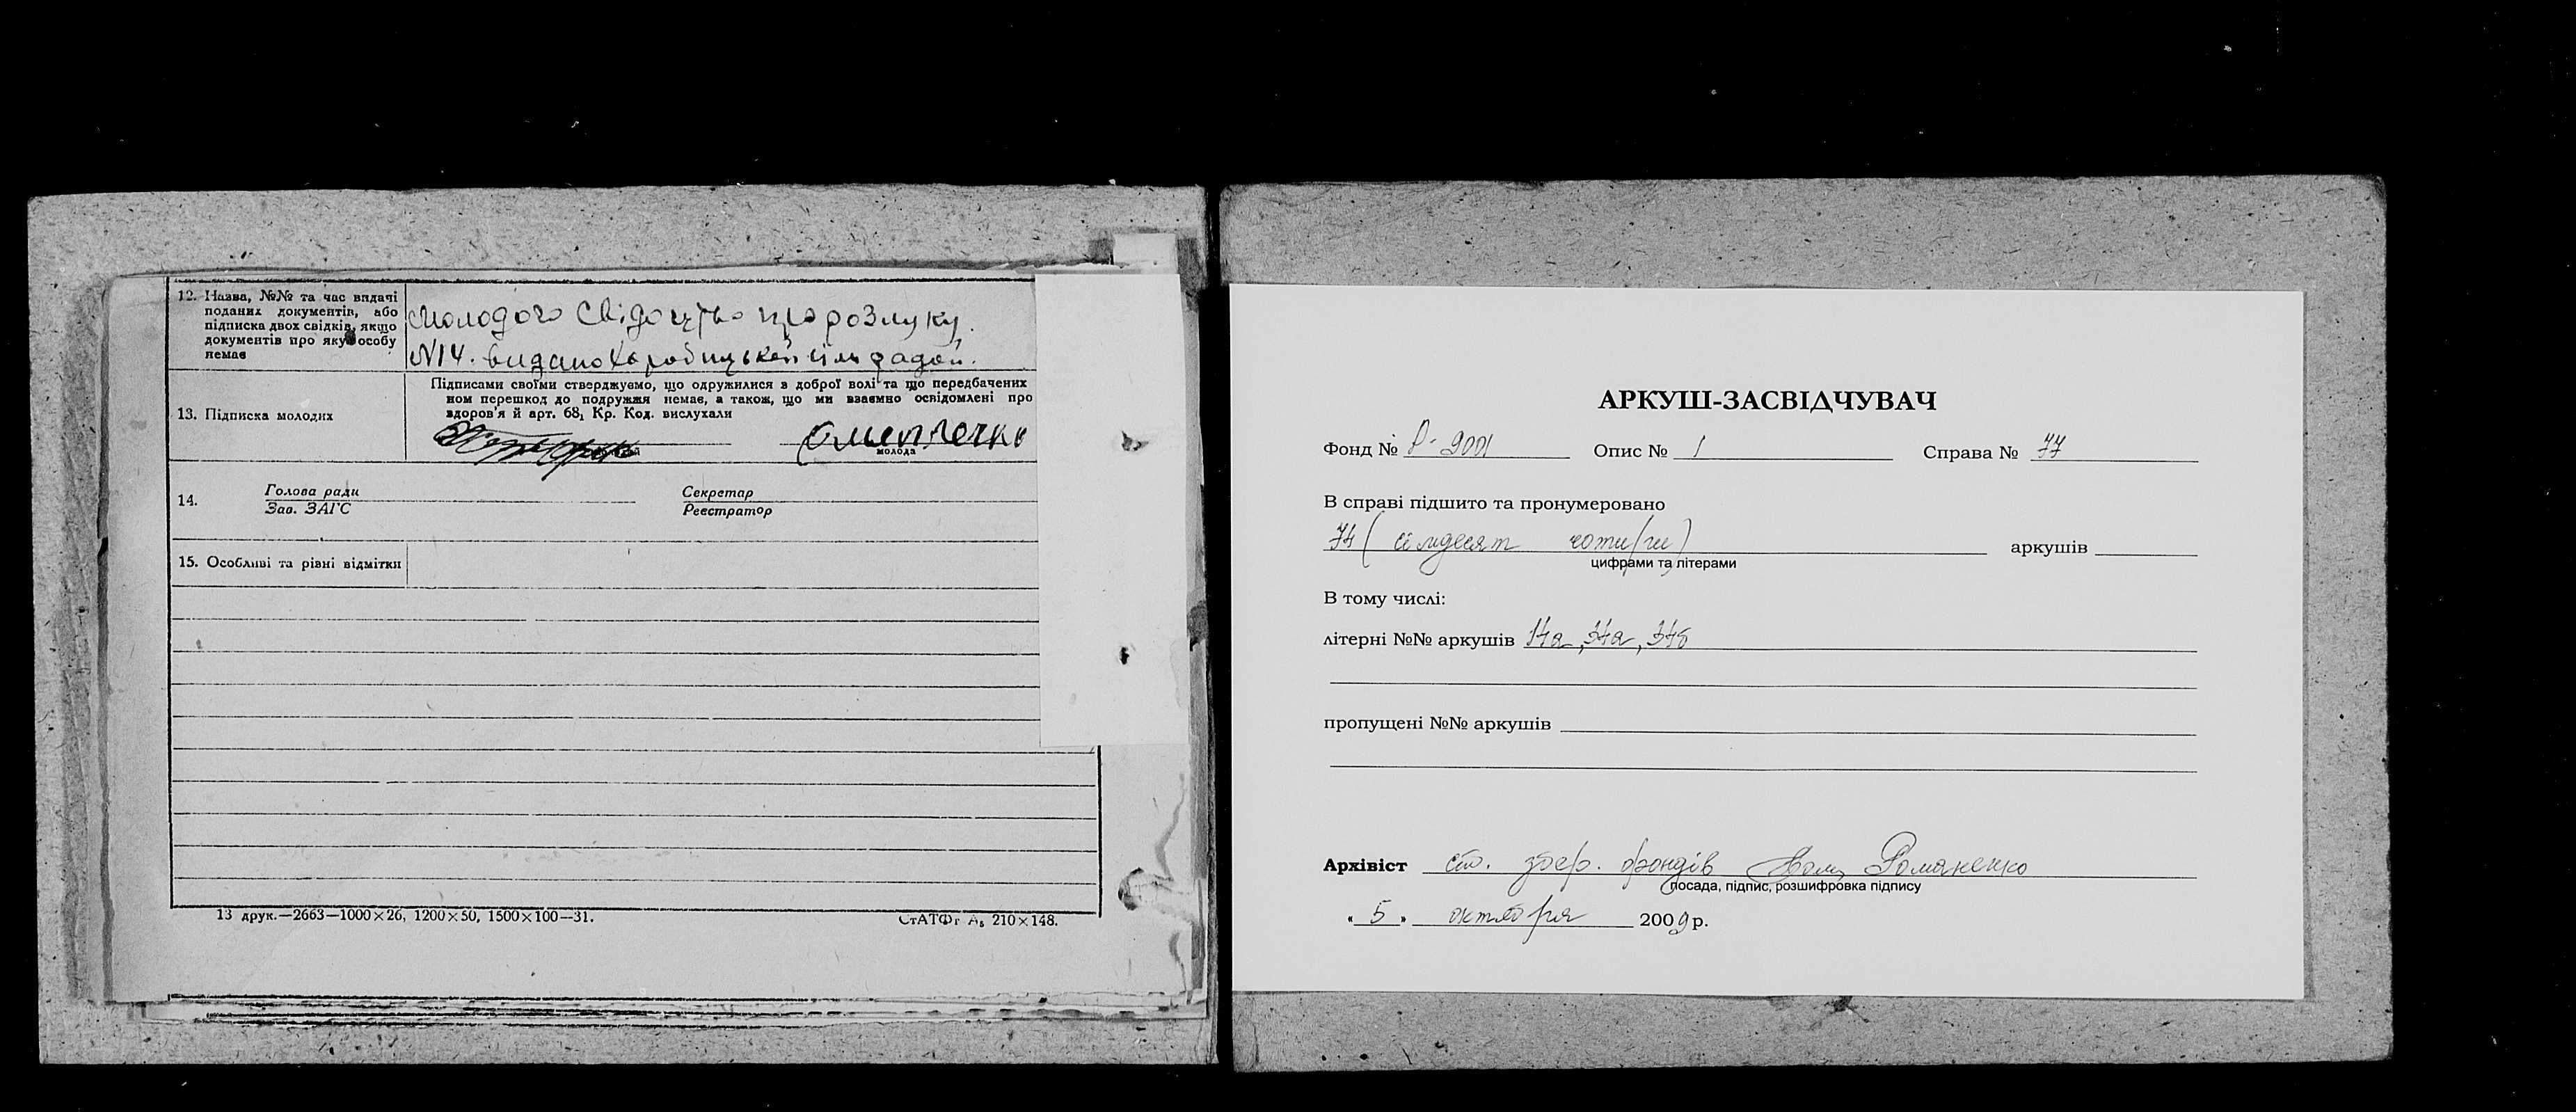 12. Назва, №№ та час видачі
поданих документів, або
підписка двох свідків, якщо
документів про яку особу
немає
Молодого свідоцтво про розлуку.
N14. видано сільрадой.
13. Підписка молодих
Підписами своїми стверджуємо, що одружилися з доброї волі та що передбачених
ном перешкод до подружжя немає, а також, що ми взаємно освідомлені про
здоров'я й арт. 68, Кр. Код. вислухали
молода
14.
Голова ради
Зав. ЗАГС
Секретар
Реєстратор
15. Особливі та рівні відмітки
13 друк.—2663—1000×26, 1200×50, 1500×100—31.
СтАТФт А₅ 210×148.
АРКУШ-ЗАСВІДЧУВАЧ
Фонд № Р-9001 Опис № 1 Справа № 77
В справі підшито та пронумеровано
74 (сімдесят чотири) аркушів
цифрами та літерами
В тому числі:
літерні №№ аркушів 14а, 34а, 34б
пропущені №№ аркушів
Архівіст ст. збер. фондів Романенко
посада, підпис, розшифровка підпису
« 5 » октября 2009 р.